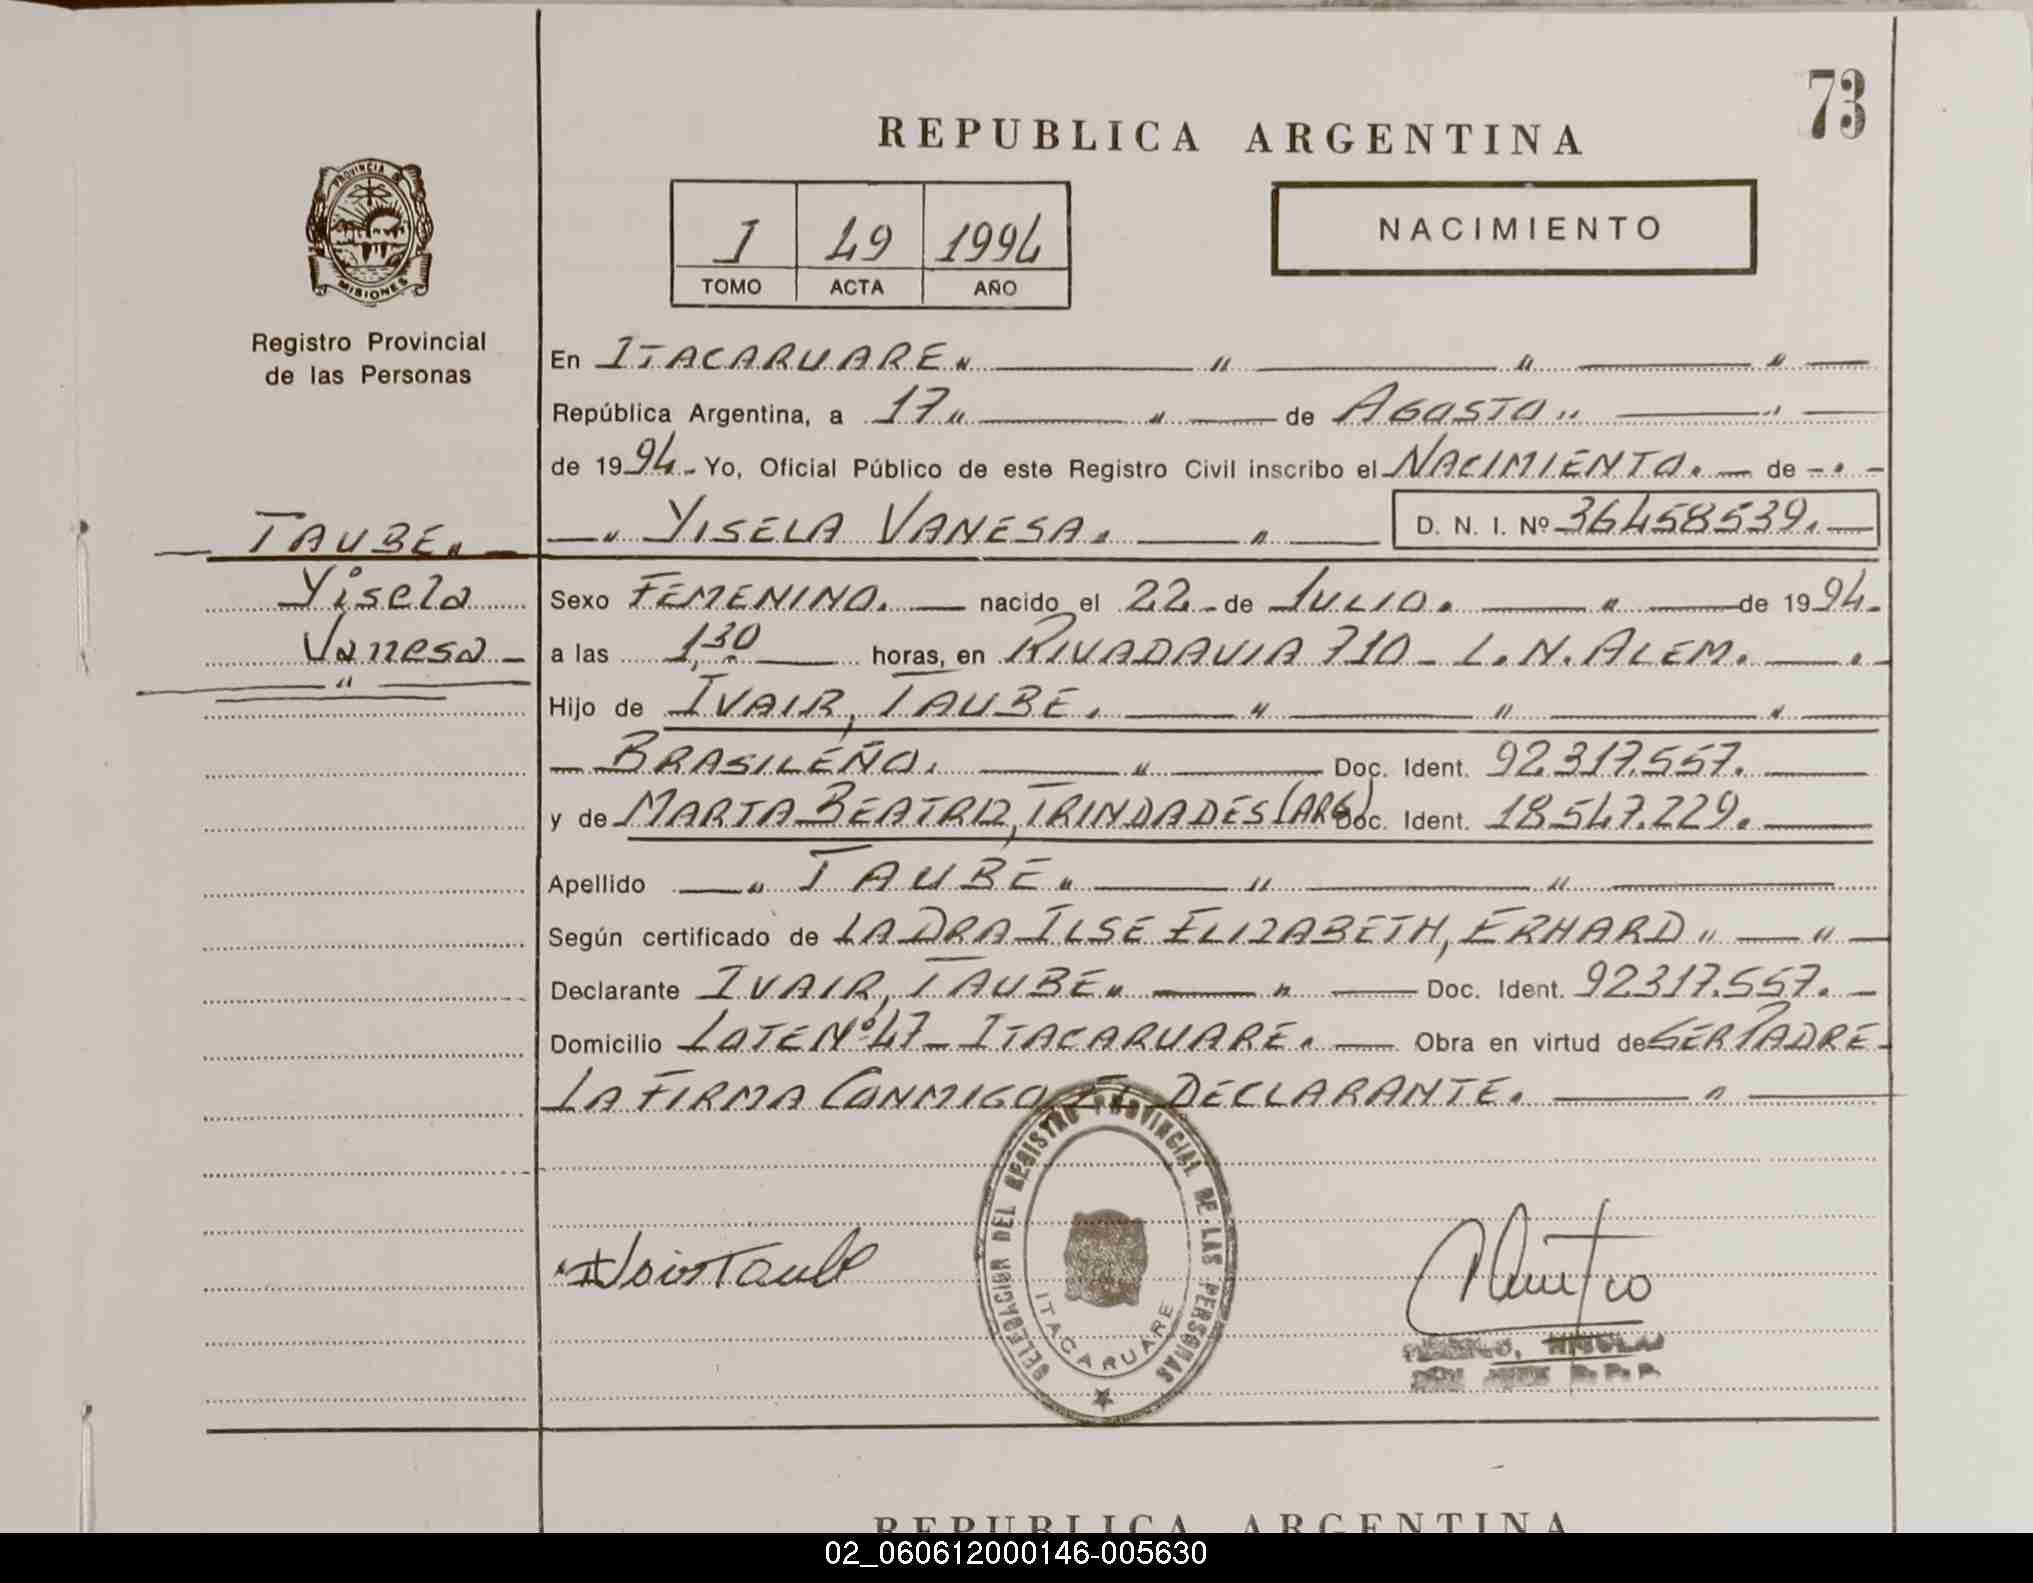 73
REPUBLICA ARGENTINA
PROVINCIA DE
MISIONES
Registro Provincial
de las Personas
1 49 1994
TOMO ACTA AÑO
NACIMIENTO
En ITACARUARE
República Argentina, a 17 de AGOSTO
de 1994.- Yo, Oficial Público de este Registro Civil inscribo el NACIMIENTO.- de
TAUBE.
YISELA VANESA. D. N. I. Nº 36458539.
Yisela
Vanesa
Sexo FEMENINO. nacido el 22.- de JULIO. de 1994.
a las 1,30 horas, en RIVADAVIA 710 - L.N. ALEM.
Hijo de IVAIR, TAUBE.
BRASILEÑO. Doc. Ident. 92.317.557.
y de MARTA BEATRIZ, TRINDADES (ARG) Doc. Ident. 18.547.229.
Apellido TAUBE
Según certificado de LA DRA ILSE ELIZABETH, ERHARD
Declarante IVAIR, TAUBE Doc. Ident. 92317.557.
Domicilio LOTE Nº 47 - ITACARUARE. Obra en virtud de SER PADRE
LA FIRMA CONMIGO EL DECLARANTE.
DELEGACION DEL REGISTRO PROVINCIAL DE LAS PERSONAS
ITACARUARE
REPUBLICA ARGENTINA
02_060612000146-005630